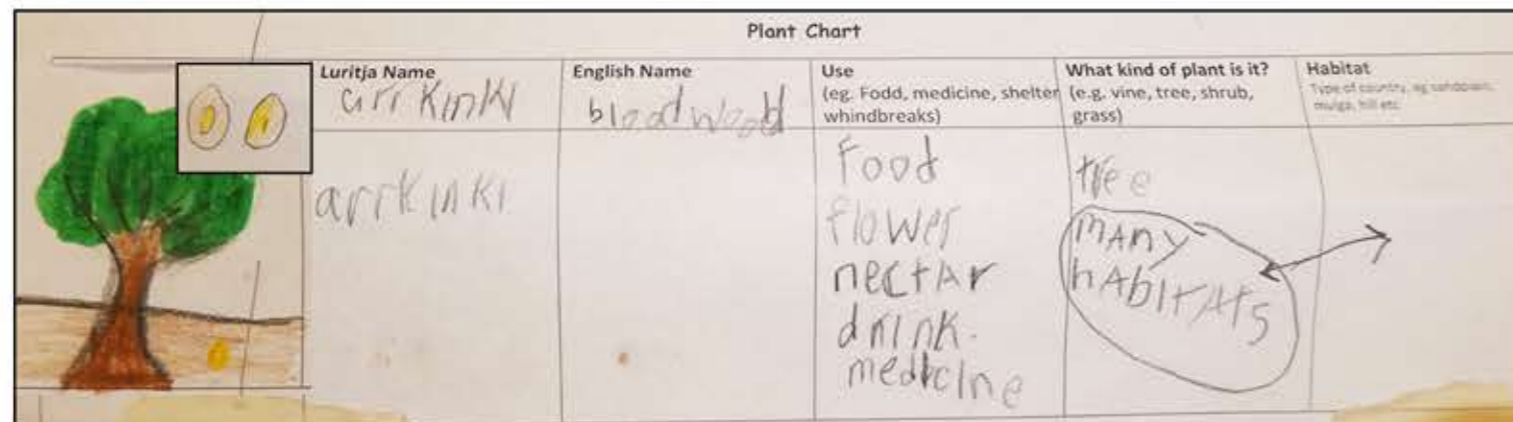 Plant Chart
Luritja Name
English Name
Use
(eg. Fodd, medicine, shelter whindbreaks)
What kind of plant is it?
(e.g. vine, tree, shrub, grass)
Habitat
Type of country, eg sandplain, mulga, hill etc
arrkinki
bloodwood
arrkinki
Food
flower
nectar
drink.
medicine
tree
mAny
hAbitAts